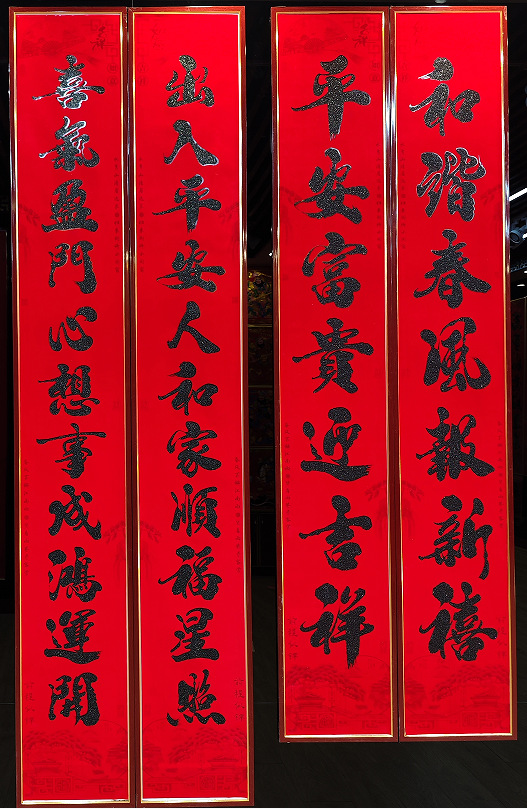 和諧春風報新禧
平安富貴迎吉祥
出入平安人和家順福星照
喜氣盈門心想事成鴻運開